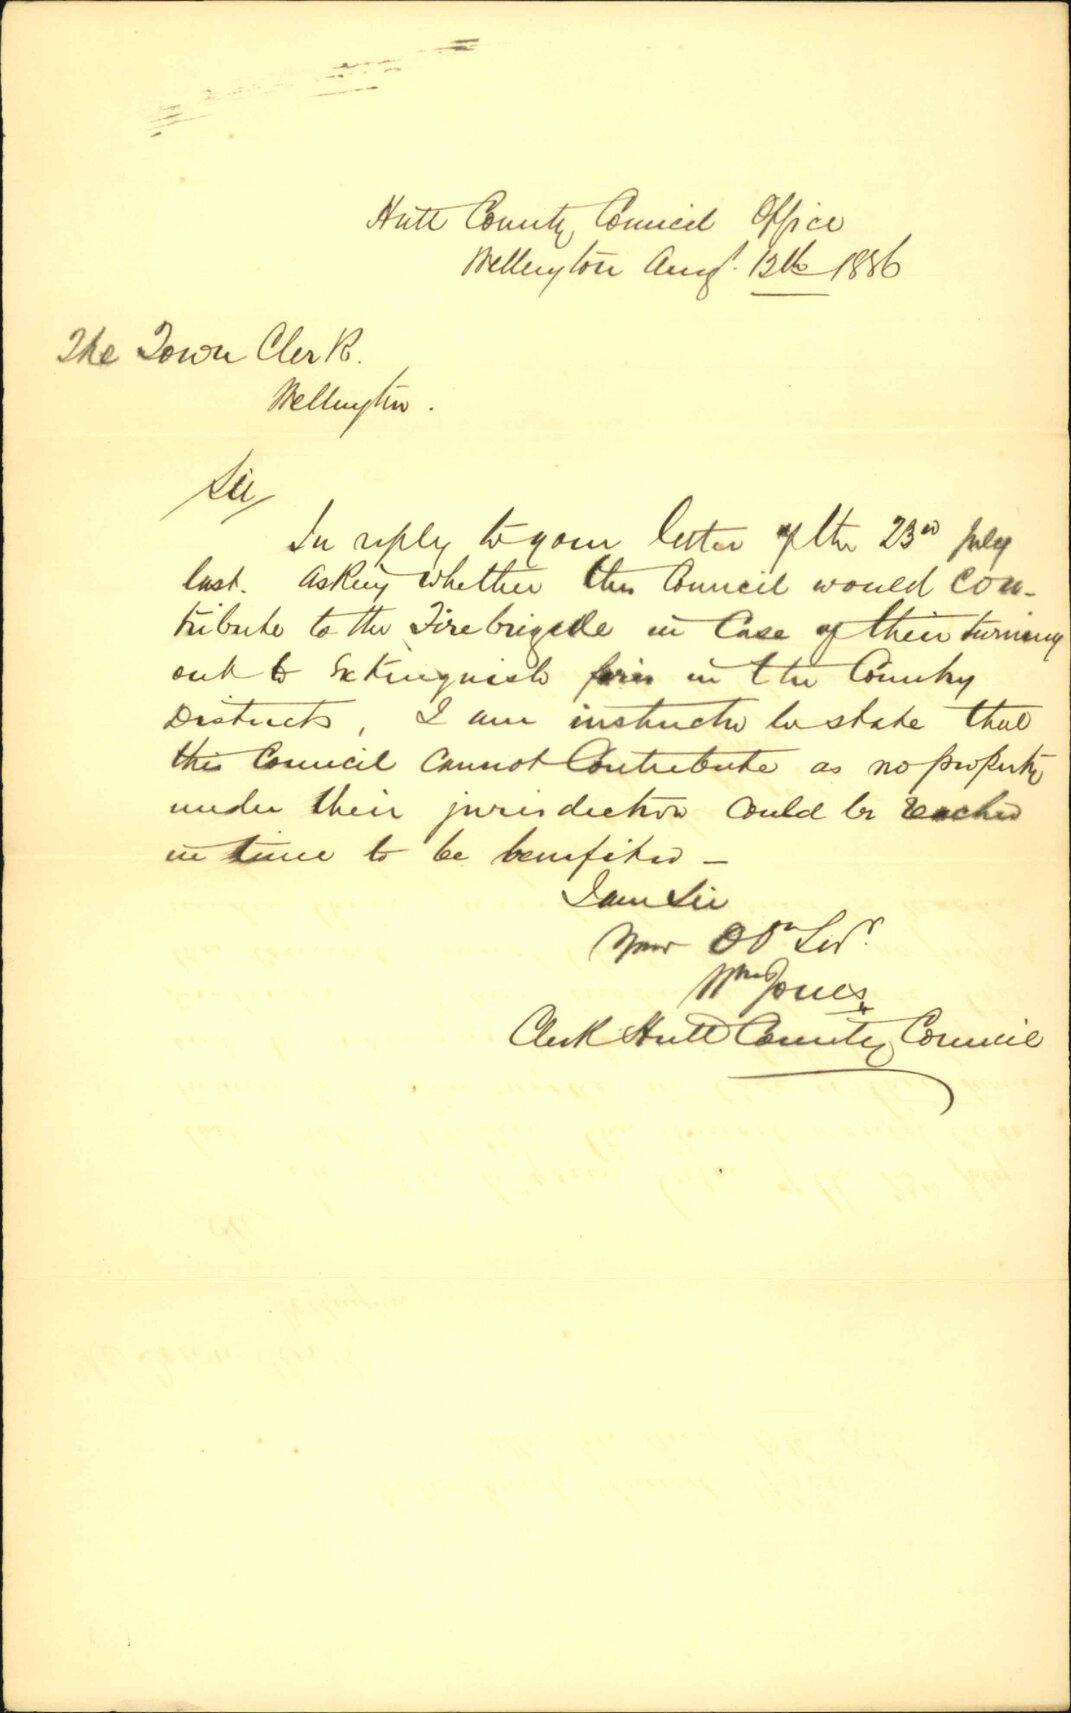 Hutt County Council Office
Wellington Augt. 12th 1886
The Town Clerk.
Wellington.
Sir
In reply to your letter of the 23rd July
last. asking whether this Council would con-
tribute to the Fire brigade in Case of their turning
out to Extinguish fires in the Country
Districts, I am instructed to state that
this Council cannot Contribute as no property
under their jurisdiction could be reached
in time to be benefited —
I am Sir
Your Obt Servt.
Wm Jones
Clerk Hutt County Council